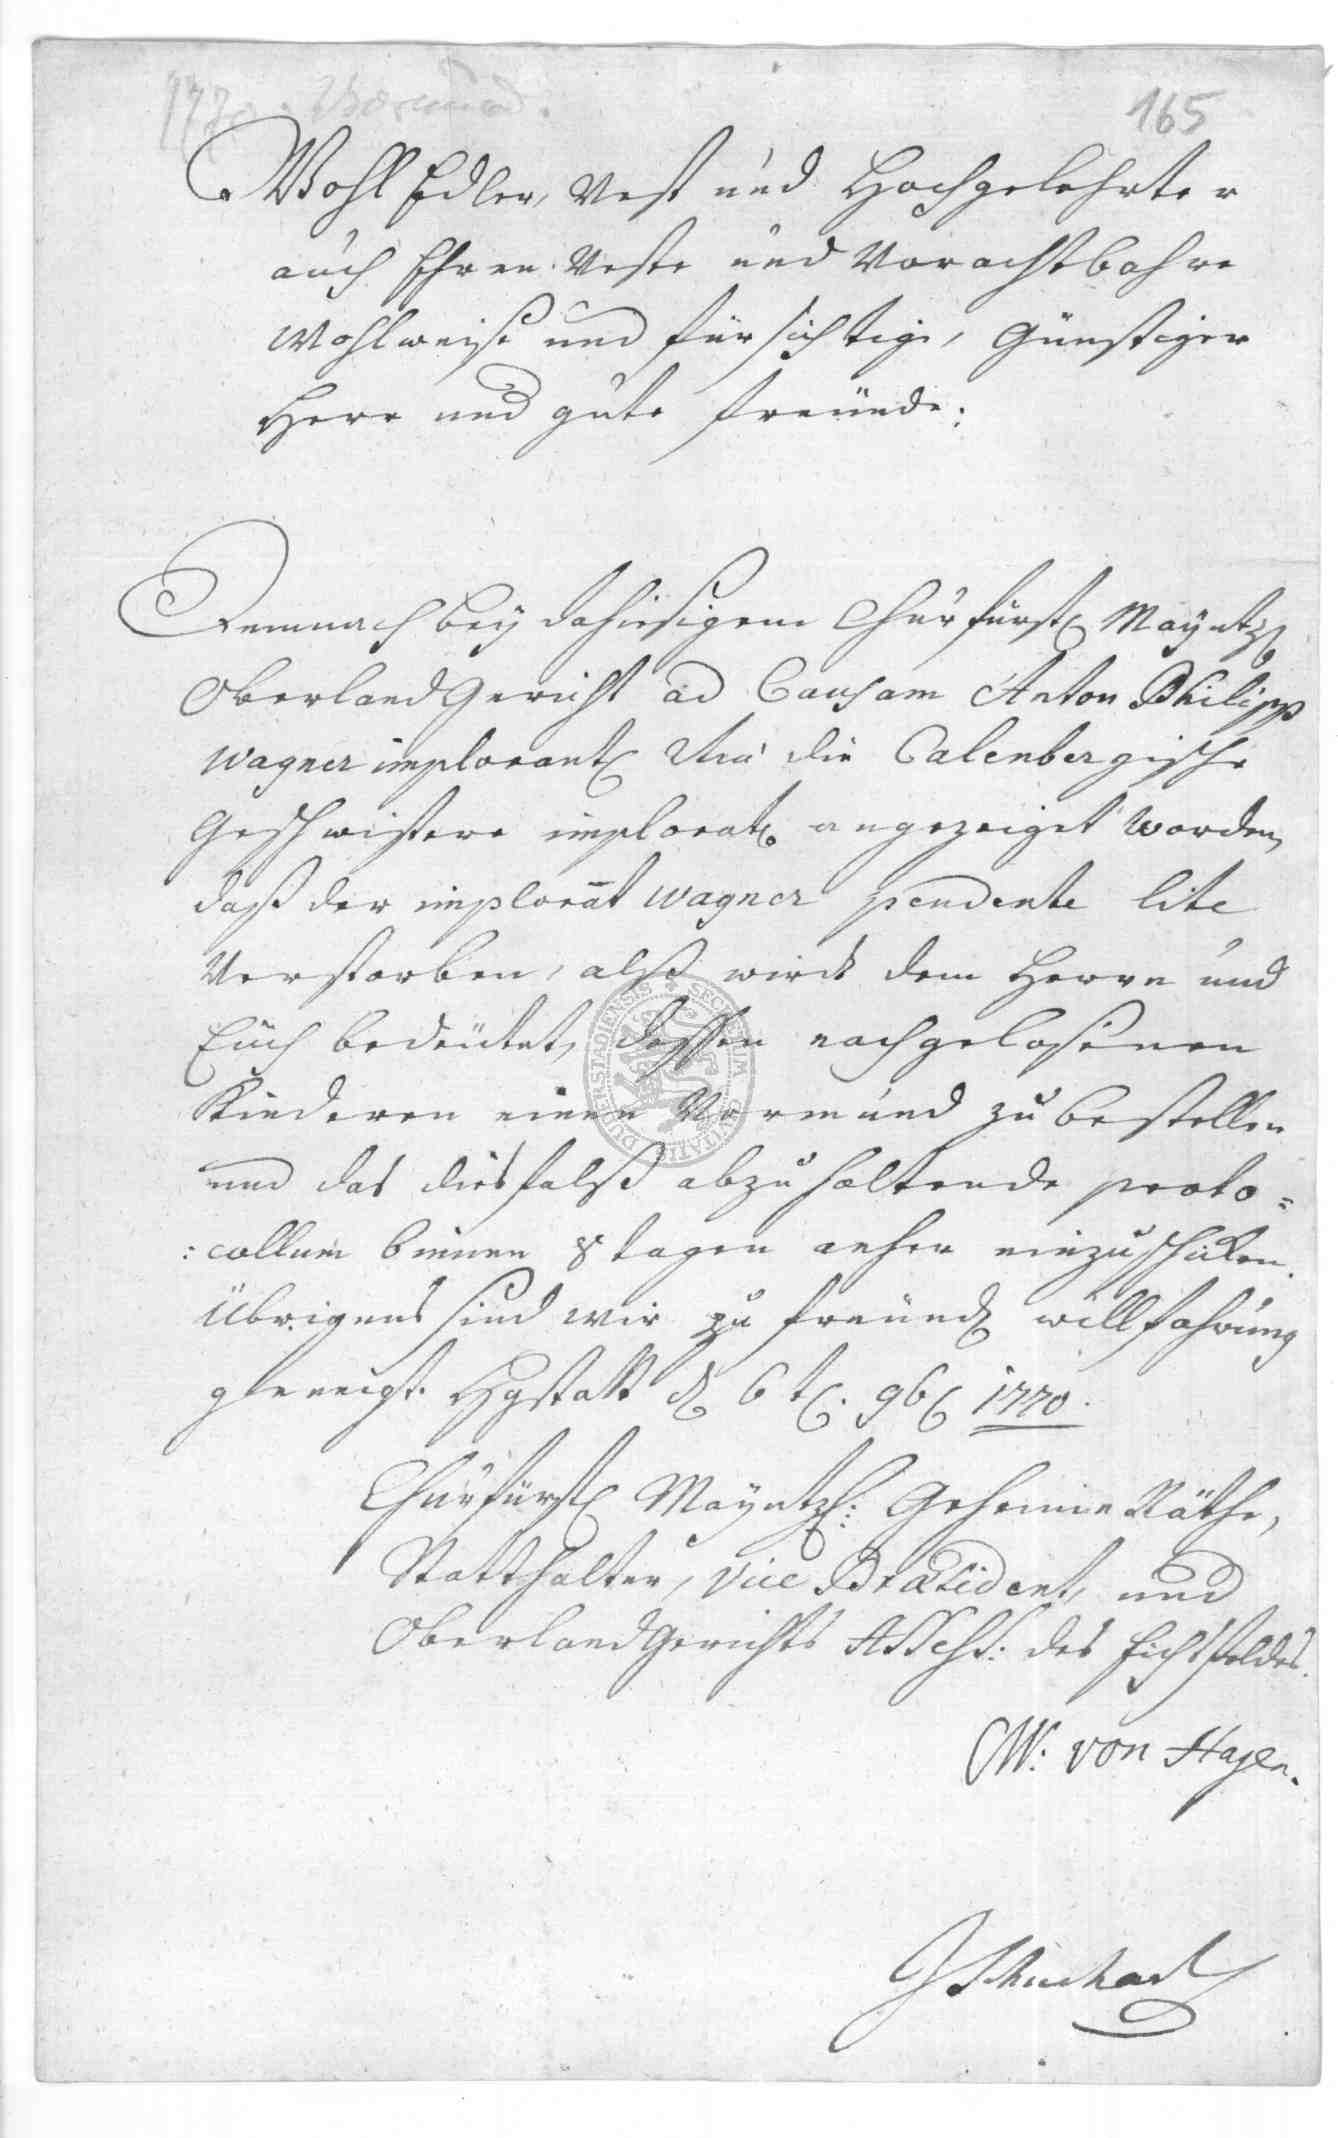 1770. Vormund.
165
Wohl Edler, Vest und Hochgelehrter
auch Ehren Veste und Vorachtbahre
Wohlweise und fürsichtige, Günstiger
Herr und gute freünde:
Demnach bey dahiesigem Churfürstl Mayntz
Oberlandgericht ad Causam Anton Philipp
Wagner implorant die Calenbergische
Geschwistere implorat angezeiget worden,
daß der implorat Wagner pendente lite
Verstorben, alß wirdt dem Herrn und
Euch bedeütet, dessen nachgelasenen
Kinderen einen Vormund zu bestellen
und das diesfalß abzuhaltende proto=
:collum binnen 8 tagen anher einzuschicken.
Übrigens sind wir zu freündl willfahrung
geneigt. Hgstatt d 6t. 9b 1770.
Churfürstl Mayntz: Geheime Räthe,
Statthalter, Vice Præsident, und
Oberlandgerichts Assess: des Eichsfeldes.
W: von Hagen.
SECRETUM CIVITATIS DUDERSTADIENSIS